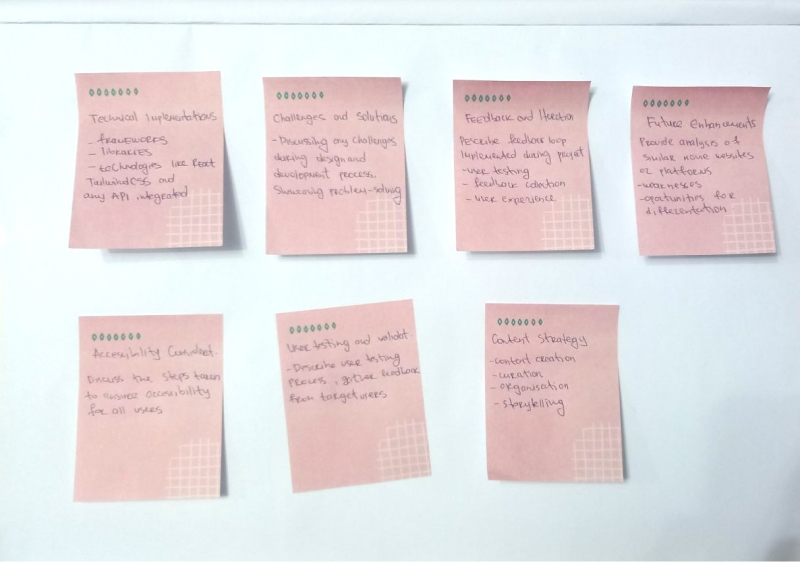 Technical Implementations
- frameworks
- libraries
- technologies like React
TailwindCSS and
any API integrated
Challenges and Solutions
- Discussing any challenges
during design and
development process.
Showcasing problem-solving
Feedback and Iteration
Describe feedback loop
implemented during projet
- user testing
- feedback collection
- user experience
Future Enhancements
Provide analysis of
similar movie websites
or platforms
- weaknesses
- oportunities for
differentation
Accesibility
Discuss the steps taken
to ensure accesibility
for all users
User testing and validat.
- Describe user testing
process, gather feedback
from target users
Content Strategy
- content creation
- curation
- organisation
- storytelling